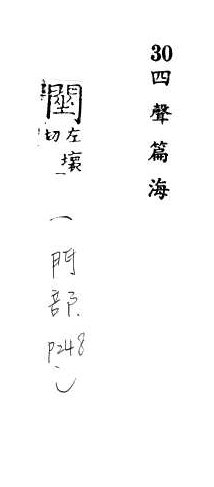 30 四聲篇海
左壞
切
(門部 P248)